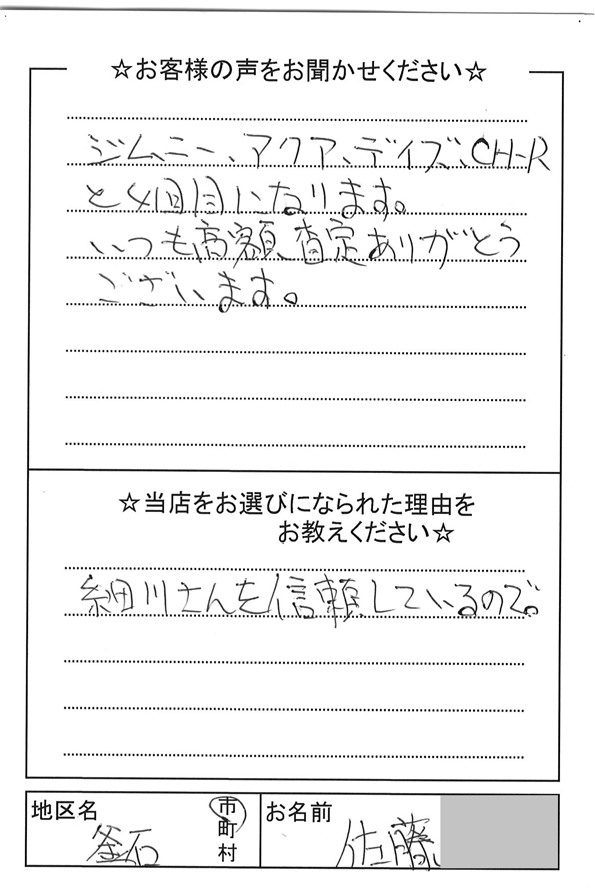 ☆お客様の声をお聞かせください☆
ジムニー、アクア、デイズ、CH-R
と4回目になります。
いつも高額査定ありがとう
ございます。
☆当店をお選びになられた理由を
お教えください☆
細川さんを信頼しているので。
地区名
釜石
市
町
村
お名前
佐藤